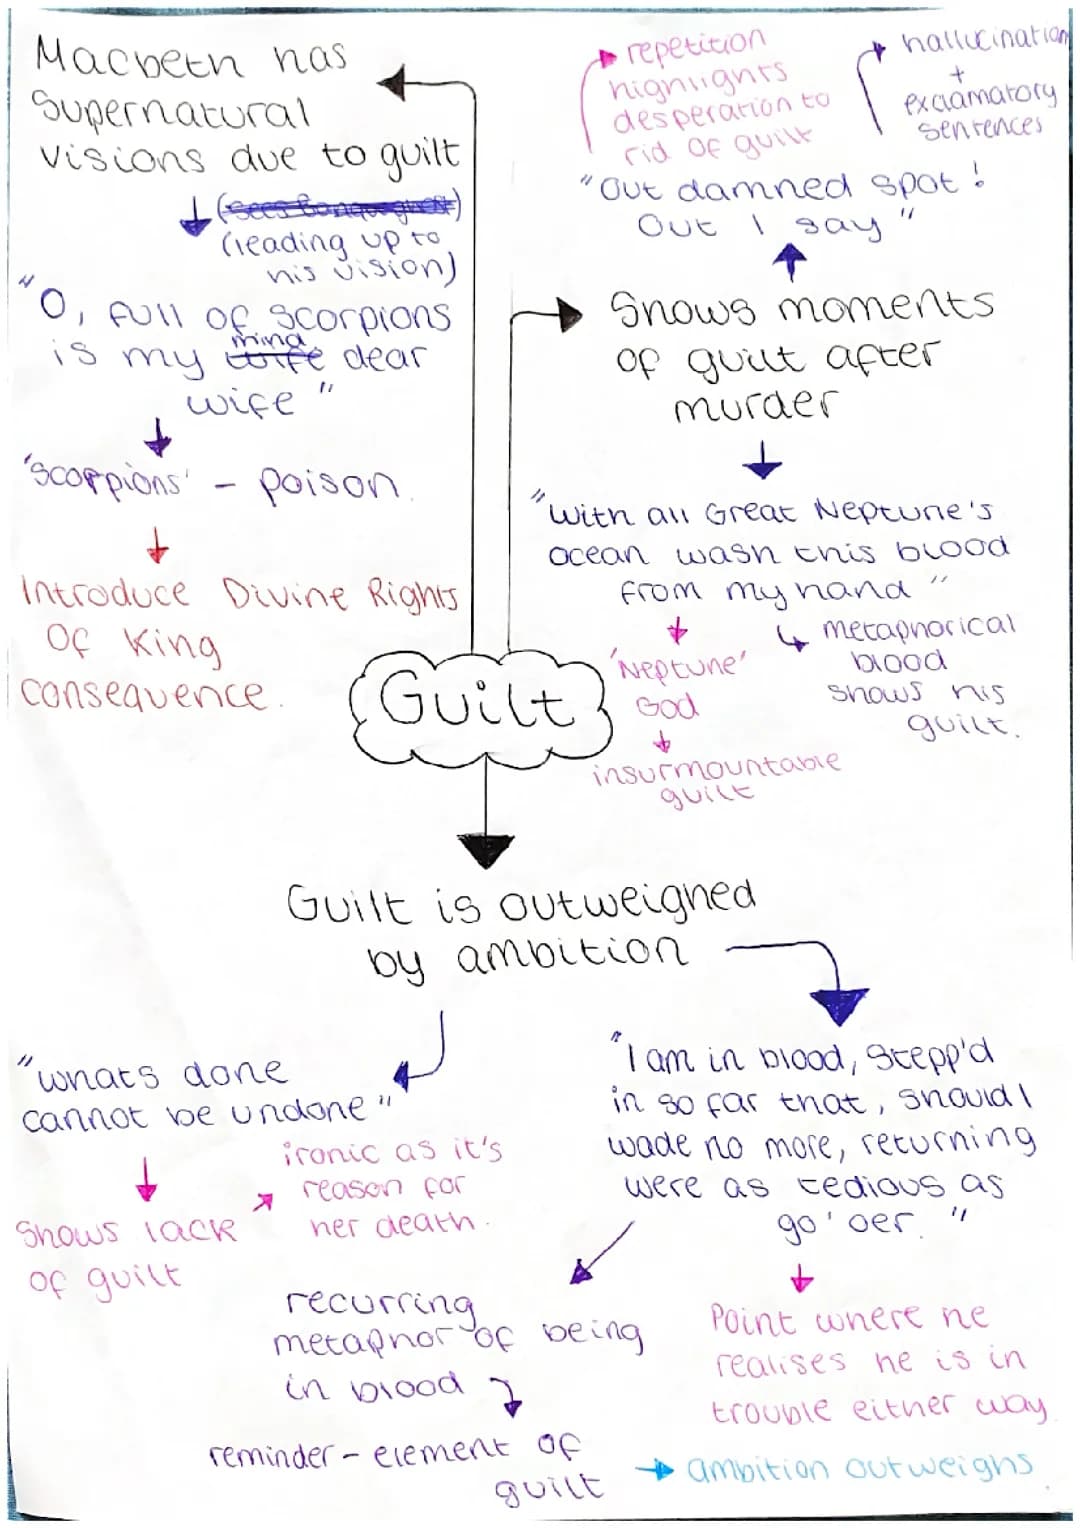 Macbeth has
Supernatural
visions due to guilt
(leading up to
his vision)
"O, full of scorpions
is my mind dear
wife"
'Scorpions' - poison.
Introduce Divine Rights
Of King
consequence.
repetition
highlights
desperation to
rid of guilt
hallucination
+
exclamatory
sentences
"Out damned spot!
Out I say"
Shows moments
of guilt after
murder
"With all Great Neptune's
ocean wash this blood
from my hand"
'Neptune'
God
insurmountable
guilt
metaphorical
blood
shows his
guilt.
Guilt
Guilt is outweighed
by ambition
"whats done
cannot be undone"
Shows lack
of guilt
ironic as it's
reason for
her death.
"I am in blood, Stepp'd
in so far that, should I
wade no more, returning
were as tedious as
go' oer."
recurring
metaphor of being
in blood
reminder - element of
guilt
Point where he
realises he is in
trouble either way
ambition outweighs